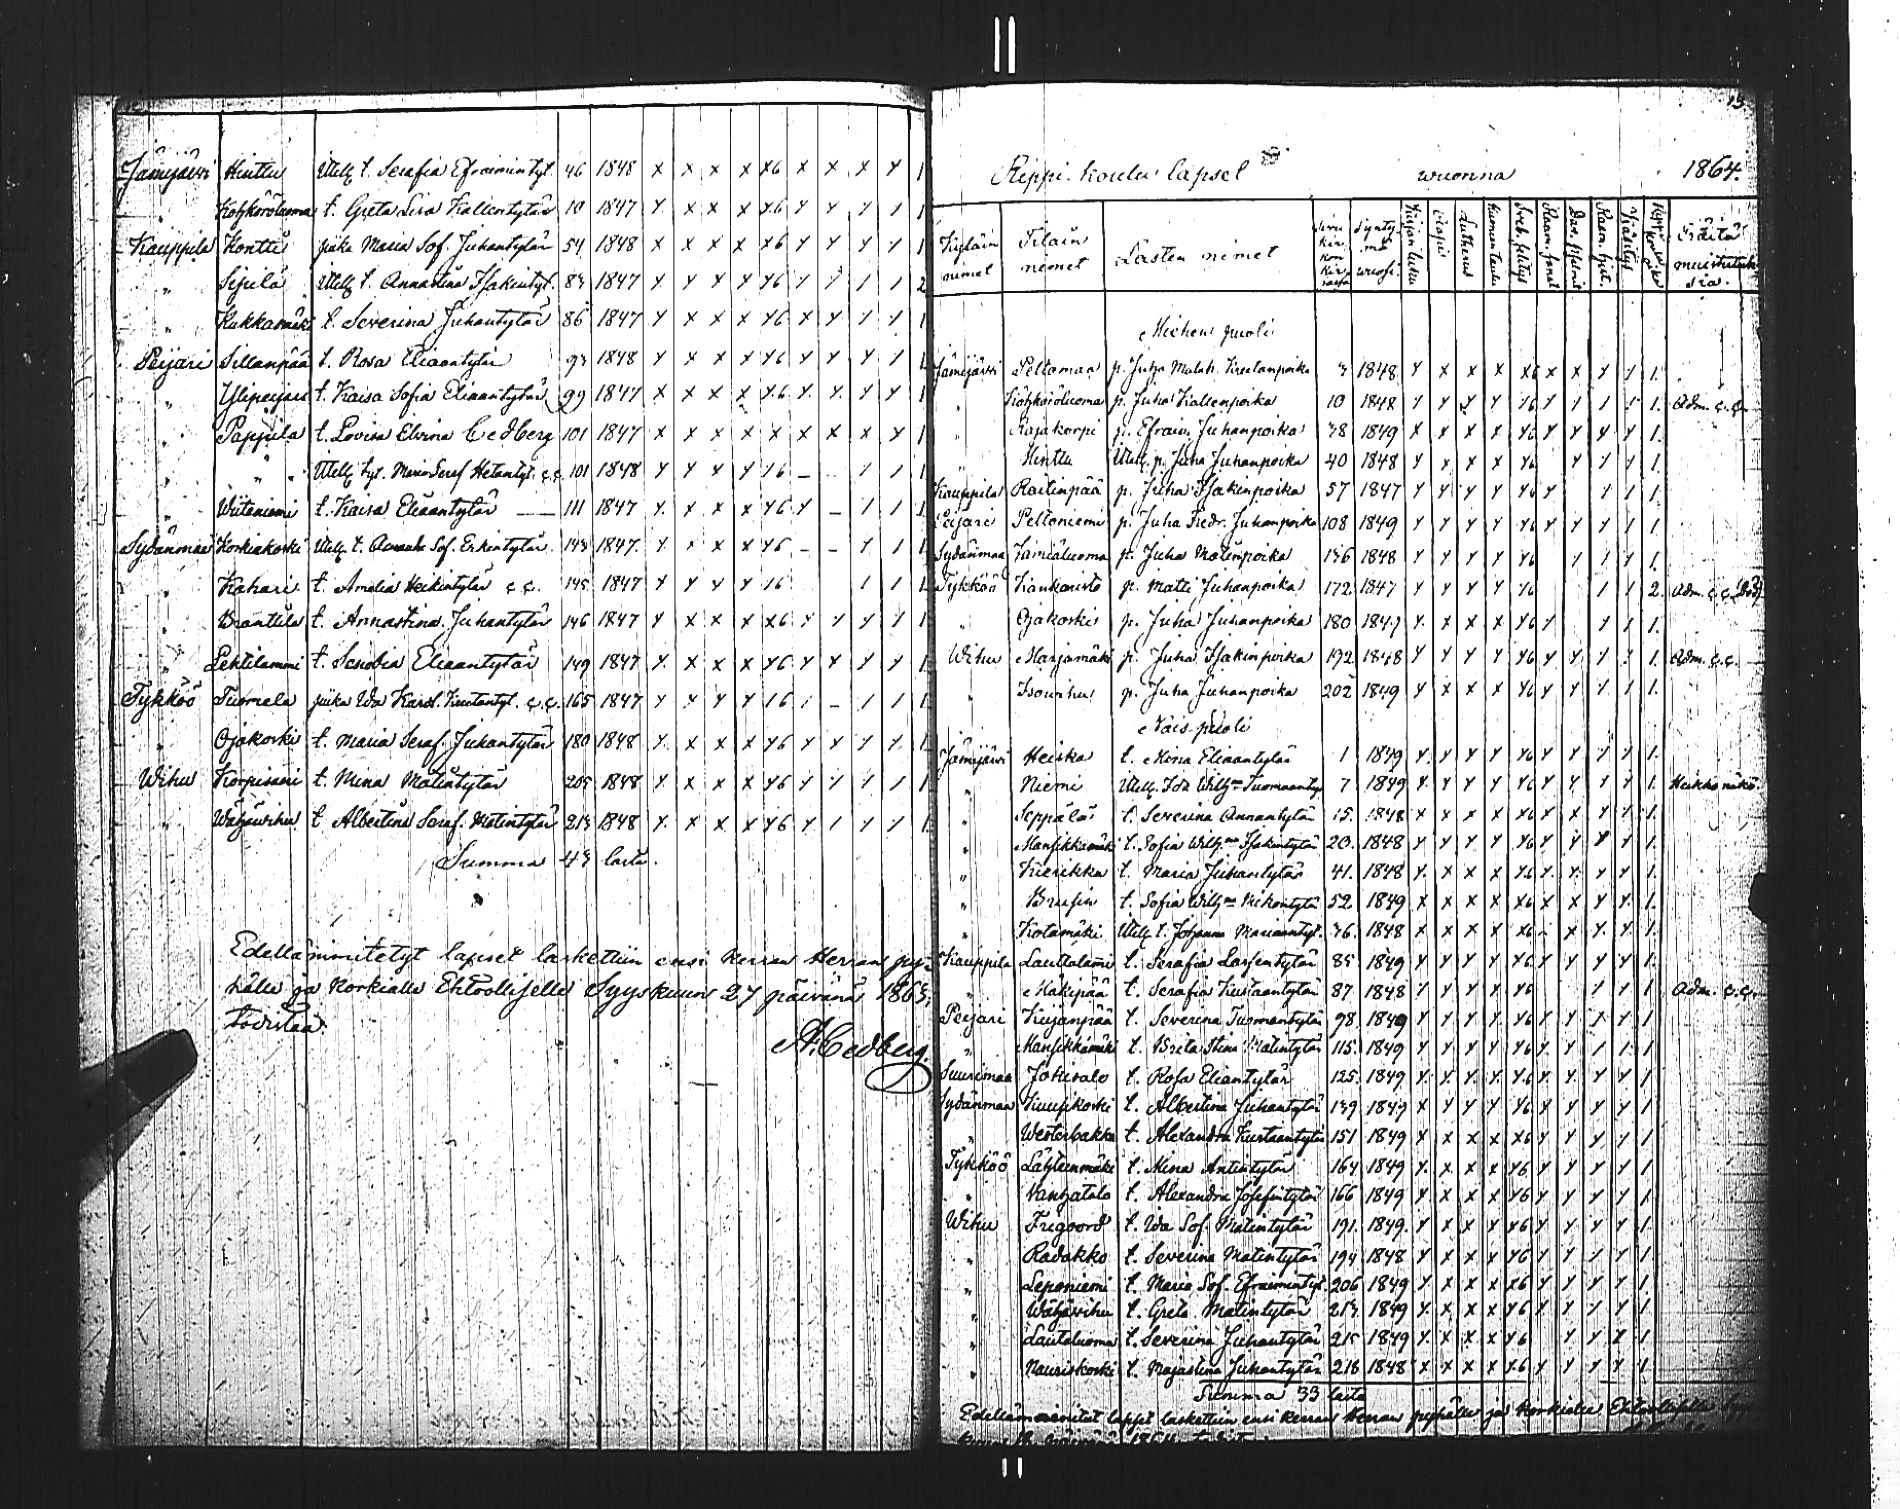 Jämijärvi Hinttu Itell. t. Serafia Efraimintyt. 46 1848 x x x x x6 x x x x 1
" Kohkoroluoma t. Greta Lisa Kallentytär 10 1847 x x x x x6 x x x 1 1
Kauppila Honttu piika Maria Sof. Juhantytär 54 1848 x x x x x6 x x x 1 1
" Sipilä Itell. t. Annastina Isakintyt. 84 1847 x x x x x6 x 1 1 1 2
" Kukkamäki t. Severina Juhantytär 86 1847 x x x x x6 x x 1 1 1
Peijari Sillanpää t. Rosa Eliaantytär 94 1848 x x x x x6 x x x 1 1
" Ylipeijari t. Kaisa Sofia Eliaantytär 99 1847 x x x x x6 x x x x 1
" Pappila t. Lovisa Elvina Cedberg 101 1847 x x x x x x x x x 1
" " Itell. tyt. Maria Seraf. Hetantyt. c.c. 101 1848 x x x x 16 – – 1 1 1
" Wiitaniemi t. Kaisa Eliaantytär 111 1847 x x x x x6 x – 1 1 1
Sydänmaa Korkiakoski Itell. t. Amanda Sof. Erkintytär 143 1847 x x x x x6 – – x 1 1
" Kahari t. Amalia Heikintytär c.c. 145 1847 x x x x 16 1 1 1
" Branttila t. Annastina Juhantytär 146 1847 x x x x x6 x x x x 1
" Lehtilammi t. Senobia Eliaantytär 149 1847 x x x x x6 x x x x 1
Tykköö Tuomela piika Ida Karol. Kustantyt. c.c. 165 1847 x x x x 16 1 – 1 1 1
" Ojakoski t. Maria Seraf. Juhantytär 180 1848 x x x x x6 x x x x 1
Wihu Korpisaari t. Mina Matintytär 205 1848 x x x x x6 x x 1 1 1
" Wähäwihu t. Albertina Seraf. Matintytär 213 1848 x x x x x6 x 1 x 1 1
Summa 43 lasta.
Edellämainitetyt lapset laskettiin ensi kerran Herran py-
hälle ja korkialle Ehtoollijelle Syyskuun 27 päivänä 1863,
todistaa.
A. Cedberg.
Rippi-koulu lapset wuonna 1864.
Kyläin nimet Tilain nimet Lasten nimet Synty- mä wuosi. Kirjan luku Lutherus Huoneen taulu
Miehen puoli
Jämijärvi Peltomaa p. Juha Matts. Kustanpoika 3 1848 x x x x x6 x x x x 1.
" Kohkoroluoma p. Juha Kallenpoika 10 1848 x x x x x6 x 1 1 1 1. Adm. c.c.
" Rajakorpi p. Efraim Juhanpoika 38 1849 x x x x x6 x x x x 1.
Hinttu Itell. p. Juha Juhanpoika 40 1848 x x x x x6 x x x 1.
Kauppila Raitinpää p. Juha Isakinpoika 57 1847 x x x x x6 x x 1 1.
Peijari Peltoniemi p. Juha Fredr. Juhanpoika 108 1849 x x x x x6 x x x 1 1
Sydänmaa Jämiäluoma p. Juha Matinpoika 136 1848 x x x x x6 x x x 1.
Tykköö Kankaristo p. Matti Juhanpoika 172 1847 x x x x x6 1 1 2. Adm. c.c.
" Ojakoski p. Juha Juhanpoika 180 1847 x x x x x6 x x x 1.
Wihu Marjamäki p. Juha Isakinpoika 192 1848 x x x x x6 x x x 1 1. Adm. c.c.
" Isowihu p. Juha Juhanpoika 202 1849 x x x x x6 x x x 1 1.
Wais puoli
Jämijärvi Heiska t. Mina Eliaantytär 1 1849 x x x x x6 x x x x 1.
" Niemi Itell. Ida Wilh:na Tuomaantyt. 7 1849 x x x x x6 x x x x 1. Heikko näkö.
" Seppälä t. Severina Annantytär 15. 1848 x x x x x6 x x x x 1.
" Mansikkamäki t. Sofia Wilh:na Isakintytär 20. 1848 x x x x x6 x x x x 1.
" Kierikka t. Maria Juhantytär 41. 1848 x x x x x6 x x x x 1.
" Brusin t. Sofia Wilh:na Mikontytär 52 1849 x x x x x6 x x x x 1.
" Kotamäki Itell. t. Johanna Mariaantyt. 76. 1848 x x x x x6 – x x x 1.
Kauppila Lauttalammi t. Serafia Larsentytär 85 1849 x x x x x6 x x x x 1.
" Mäkipää t. Serafia Kustaantytär 87 1848 x x x x x6 x x 1 Adm. c.c.
Peijari Kujanpää t. Severina Tuomantytär 98. 1849 x x x x x6 x x x x 1
" Mansikkamäki t. Breta Stina Matintytär 115. 1849 x x x x x6 x x 1 1 1
Suurimaa Jokisalo t. Rosa Eliantytär 125. 1849 x x x x x6 x x x x 1
Sydänmaa Kuusikoski t. Albertina Juhantytär 139 1849 x x x x x6 x x x x 1
" Westerbakka t. Alexandra Kustaantytär 151 1849 x x x x x6 x x x x 1
Tykköö Lähteenmäki t. Mina Antintytär 164 1849 x x x x x6 x x x x 1
" Vanhatalo t. Alexandra Josefintytär 166 1849 x x x x x6 x x x x 1
Wihu Fregoord t. Ida Sof. Matintytär 191. 1849. x x x x x6 x x x x 1
" Radakko t. Severina Matintytär 194 1848 x x x x x6 x x x x 1
" Leponiemi t. Maria Sof. Efraimintyt. 206 1849 x x x x x6 x x x x 1
" Wähäwihu t. Greta Matintytär 213. 1849 x x x x x6 x x x x 1
" Lautaluoma t. Severina Juhantytär 215 1849 x x x x x6 x x x 1
" Nauriskoski t. Majastina Juhantytär 218 1848 x x x x x6 x x x x 1
Summa 33 lasta
Edellämainitut lapset laskettiin ensi kerran Herran pyhälle ja korkialle Ehtoollijelle